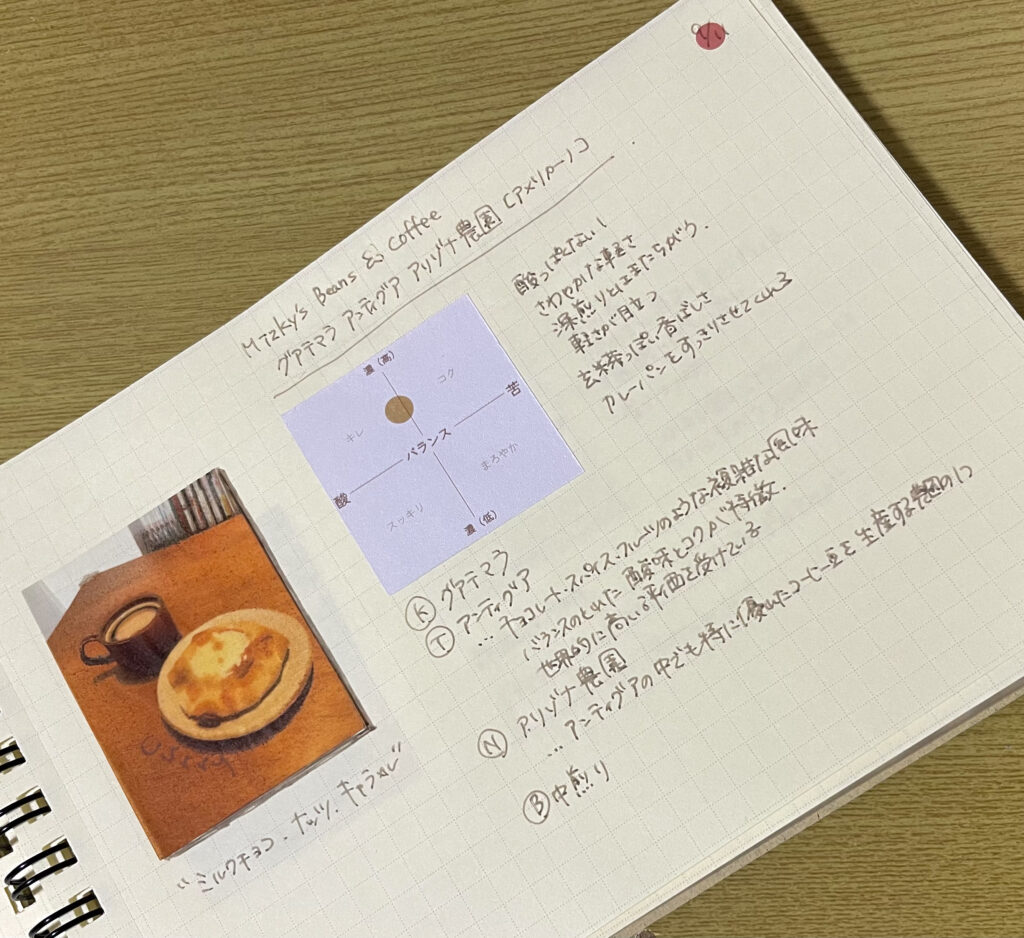 Mtzky's Beans & Coffee
グアテマラ アンティグア アリゾナ農園 [アメリカーノ]
濃(高)
コク
キレ
苦
バランス
酸
まろやか
スッキリ
濃(低)
酸っぱくない!
さわやかな軽さ
深煎りとはまたちがう.
軽さが目立つ
玄米茶っぽい香ばしさ
カレーパンをすっきりさせてくれる
Ⓚ グアテマラ
Ⓣ アンティグア
… チョコレート・スパイス・フルーツのような複雑な風味
バランスのとれた酸味とコクが特徴.
世界的に高い評価を受けている
Ⓝ アリゾナ農園
… アンティグアの中でも特に優れたコーヒー豆を生産する
Ⓑ 中煎り
"ミルクチョコ・ナッツ・キャラメル"